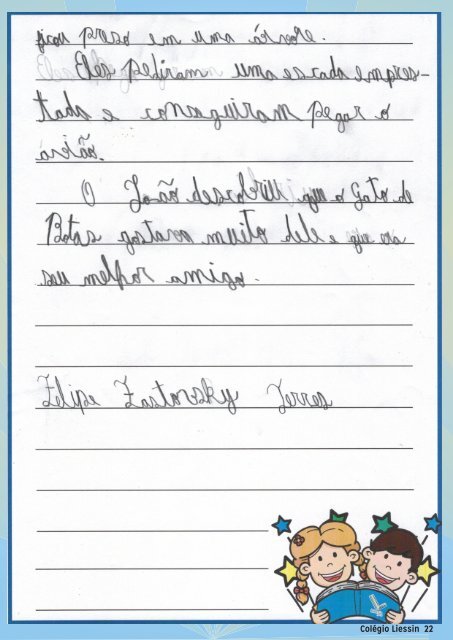 ficou preso em uma árvore.
Eles pediram uma escada empres-
tada e conseguiram pegar o
avião.
O João descobriu que o Gato de
Botas gostava muito dele e que era
seu melhor amigo.
Felipe Zastavsky Terres
Colégio Liessin 22